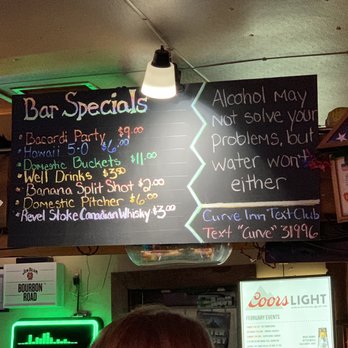 Bar Specials
* Bacardi Party $9.00
* Hawaii 5-0 $6.00
* Domestic Buckets $11.00
* Well Drinks $3.00
* Banana Split Shot $2.00
* Domestic Pitcher $6.00
* Revel Stoke Canadian Whisky $3.00
Alcohol may
not solve your
problems, but
water won't
either
Curve Inn Text Club
Text "Curve" 31996
JIM BEAM
BOURBON
ROAD
Coors LIGHT
FEBRUARY EVENTS